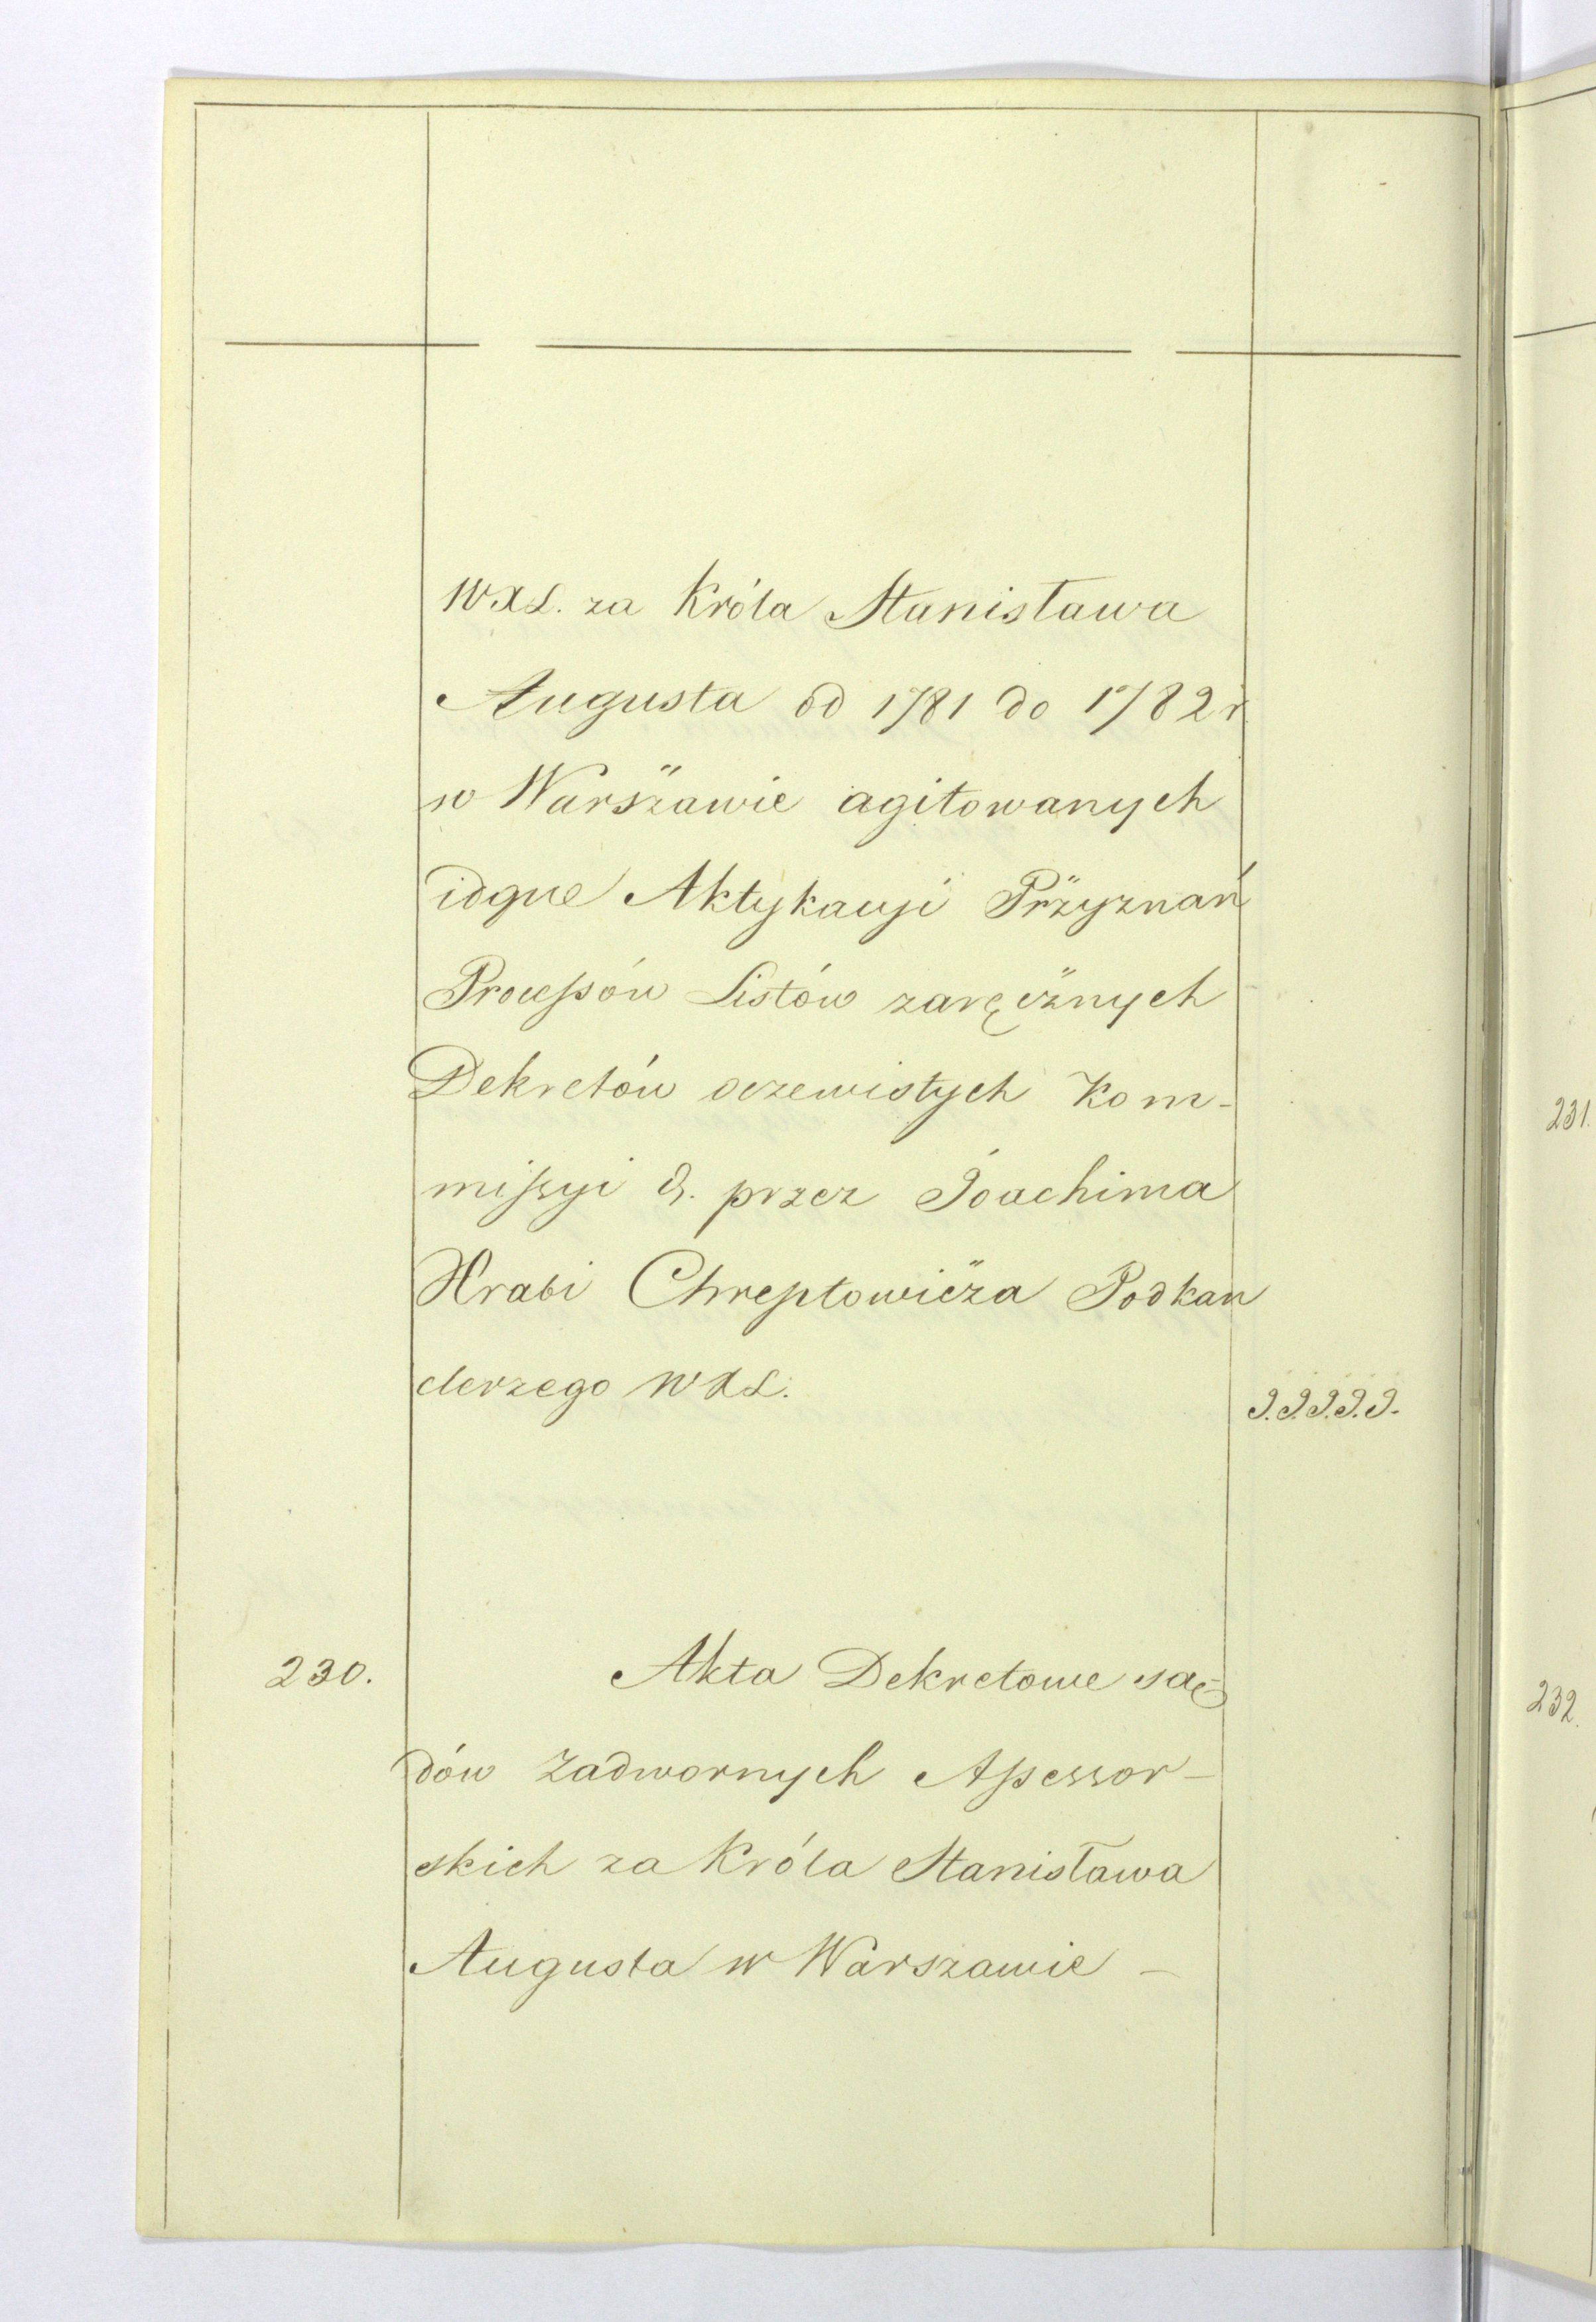 WXL. za Króla Stanisława
Augusta od 1781 do 1782 r
w Warszawie agitowanych
idque Aktykacyi Przyznań
Processów Listów zaręcznych
Dekretów oczewistych Kom-
missyi &. przez Joachima
Hrabi Chreptowicza Podkan
clerzego WXL.
J.J.J.J.J.
230.
Akta Dekretowe są-
dów Zadwornych Assessor-
skich za Króla Stanisława
Augusta w Warszawie -
231.
232.